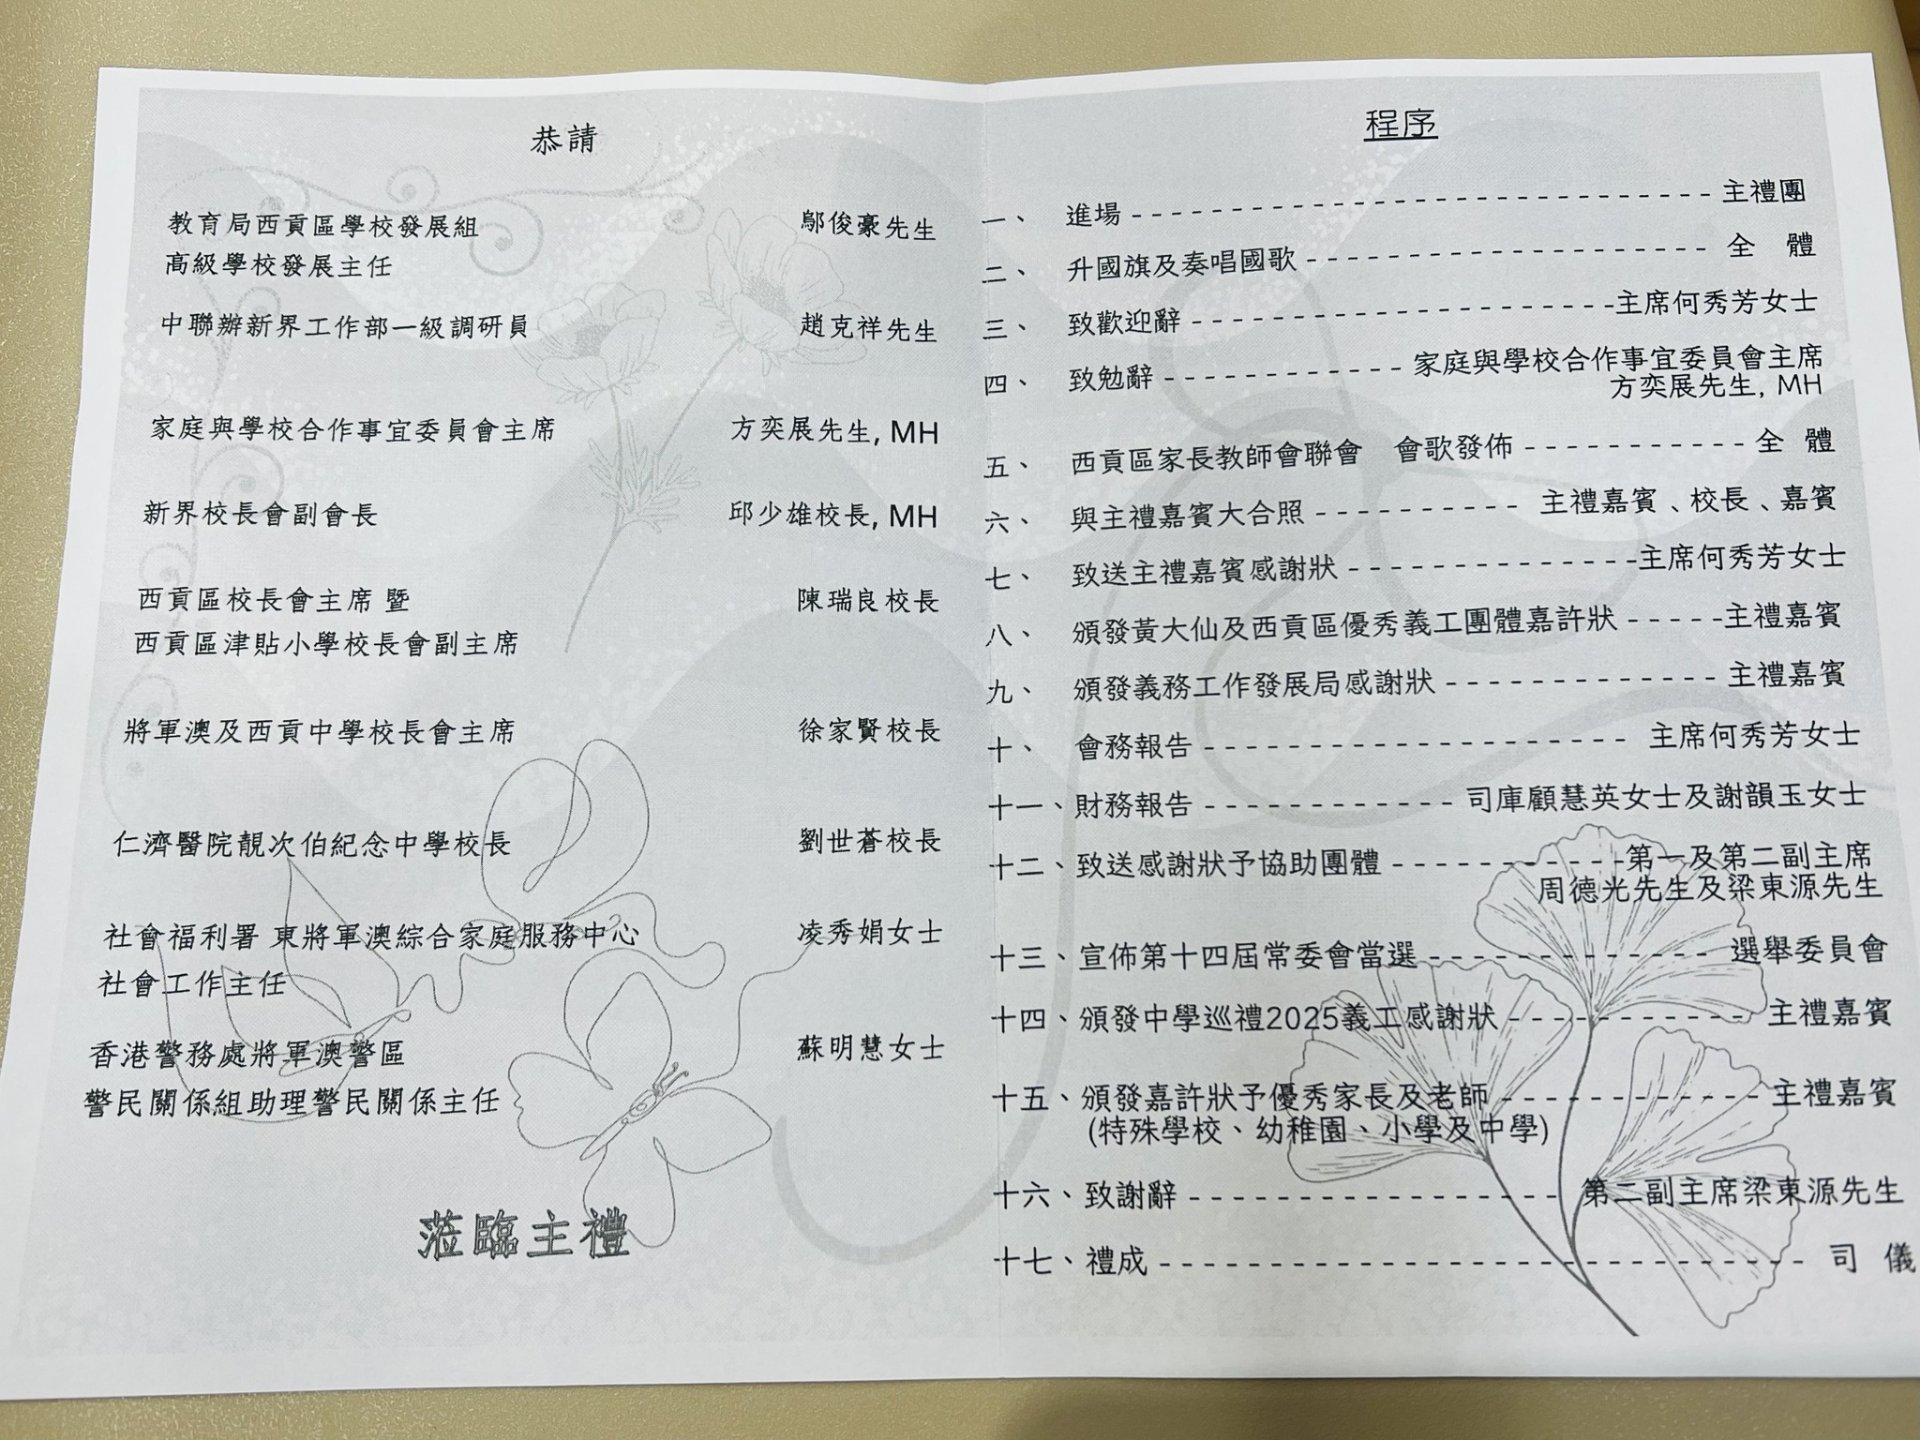 恭請
教育局西貢區學校發展組 鄔俊豪先生
高級學校發展主任
中聯辦新界工作部一級調研員 趙克祥先生
家庭與學校合作事宜委員會主席 方奕展先生, MH
新界校長會副會長 邱少雄校長, MH
西貢區校長會主席 暨 陳瑞良校長
西貢區津貼小學校長會副主席
將軍澳及西貢中學校長會主席 徐家賢校長
仁濟醫院靚次伯紀念中學校長 劉世蒼校長
社會福利署 東將軍澳綜合家庭服務中心 凌秀娟女士
社會工作主任
香港警務處將軍澳警區 蘇明慧女士
警民關係組助理警民關係主任
蒞臨主禮
程序
一、 進場 --------------------------- 主禮團
二、 升國旗及奏唱國歌 ------------------ 全 體
三、 致歡迎辭 -------------------主席何秀芳女士
四、 致勉辭 ------------ 家庭與學校合作事宜委員會主席
方奕展先生, MH
五、 西貢區家長教師會聯會 會歌發佈 ----------- 全 體
六、 與主禮嘉賓大合照 ---------- 主禮嘉賓、校長、嘉賓
七、 致送主禮嘉賓感謝狀 --------------主席何秀芳女士
八、 頒發黃大仙及西貢區優秀義工團體嘉許狀 -----主禮嘉賓
九、 頒發義務工作發展局感謝狀 ------------- 主禮嘉賓
十、 會務報告 -------------------- 主席何秀芳女士
十一、財務報告 ------------ 司庫顧慧英女士及謝韻玉女士
十二、致送感謝狀予協助團體 -----------第一及第二副主席
周德光先生及梁東源先生
十三、宣佈第十四屆常委會當選 ------------- 選舉委員會
十四、頒發中學巡禮2025義工感謝狀 ----------- 主禮嘉賓
十五、頒發嘉許狀予優秀家長及老師 ------------ 主禮嘉賓
(特殊學校、幼稚園、小學及中學)
十六、致謝辭 ----------------- 第二副主席梁東源先生
十七、禮成 ----------------------------- 司 儀